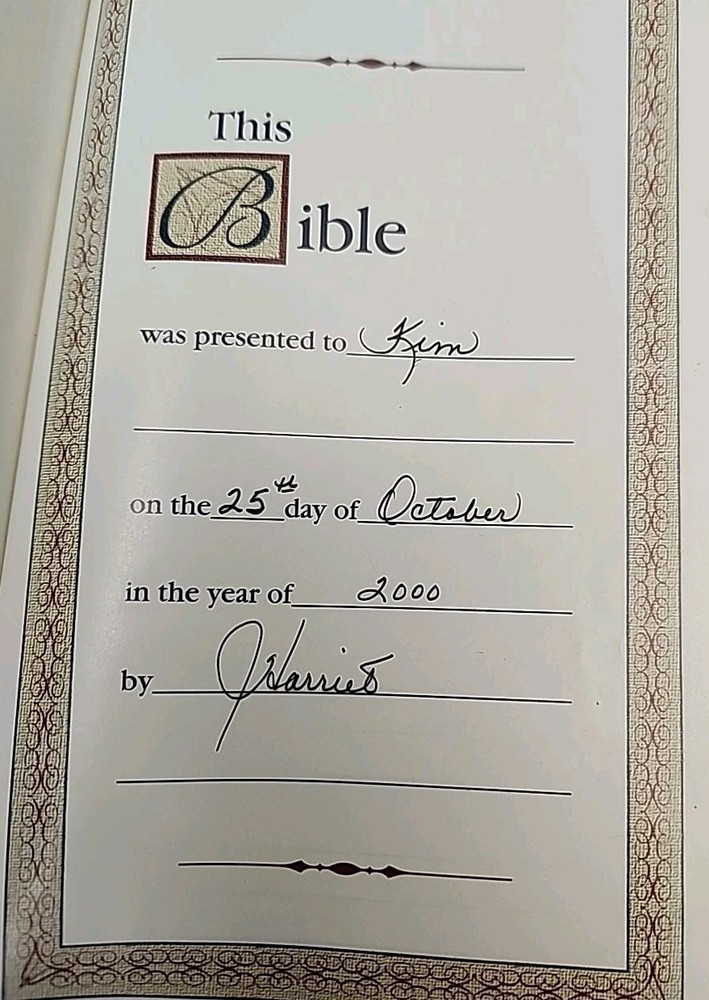 This
Bible
was presented to Kim
on the 25th day of October
in the year of 2000
by J Harriet